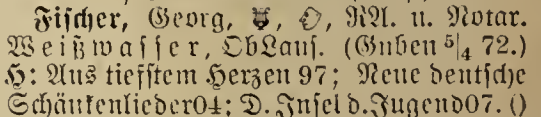 Fischer, Georg, RA. u. Notar.
Weißwasser, ObLaus. (Guben 5/4 72.)
H: Aus tiefstem Herzen 97; Neue deutsche
Schänkenlieder 04; D. Insel d. Jugend 07. ()